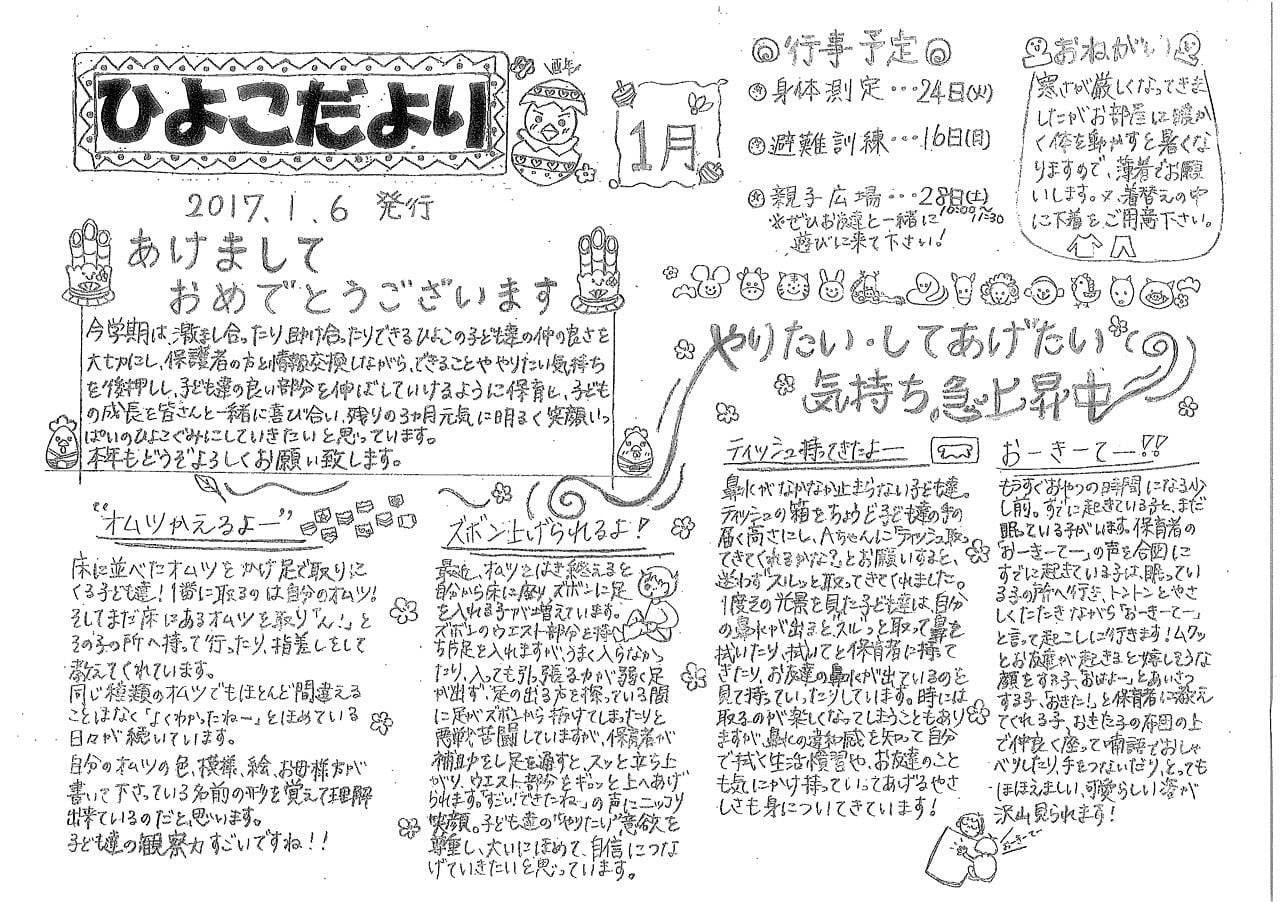 ひよこだより
酉年
1月
2017.1.6 発行
行事予定
身体測定…24日(火)
避難訓練…16日(月)
親子広場…28日(土)
10:00～11:30
※ぜひお友達と一緒に
遊びに来て下さい!
おねがい
寒さが厳しくなってきま
したがお部屋は暖か
く体を動かすと暑くな
りますので、薄着でお願
いします。又、着替えの中
に下着をご用意下さい。
あけまして
おめでとうございます
今学期は、激まし合ったり、助け合ったりできるひよこの子ども達の仲の良さを
大切にし、保護者の方と情報交換しながら、できることややりたい気持ち
を後押しし、子ども達の良い部分を伸ばしていけるように保育し、子ども
の成長を皆さんと一緒に喜び合い、残りの3ヵ月元気に明るく笑顔いっ
ぱいのひよこぐみにしていきたいと思っています。
本年もどうぞよろしくお願い致します。
やりたい・してあげたい
気持ち急上昇中
“オムツかえるよー”
床に並べたオムツをかけ足で取りに
くる子ども達!1番に取るのは自分のオムツ!
そしてまだ床にあるオムツを取り“ん!”と
その子の所へ持って行ったり、指差しをして
教えてくれています。
同じ種類のオムツでもほとんど間違える
ことはなく「よくわかったねー」とほめている
日々が続いています。
自分のオムツの色、模様、絵、お母様方が
書いて下さっている名前の形を覚えて理解
出来ているのだと思います。
子ども達の観察力すごいですね!!
ズボン上げられるよ!
最近、オムツをはき終えると
自分から床に座り、ズボンに足
を入れる子が増えています。
ズボンのウエスト部分を持
ち片足を入れますが、うまく入らなかっ
たり、入っても引っ張る力が弱く足
が出ず、足の出る方を探っている間
に足がズボンから抜けてしまったりと
悪戦苦闘していますが、保育者が
補助をし足を通すと、スッと立ち上
がり、ウエスト部分をギュッと上へあげ
られます。“すごい!できたね〜”の声にニッコリ
笑顔。子ども達の“やりたい”意欲を
尊重し、大いにほめて、自信につな
げていきたいと思っています。
ティッシュ持ってきたよー
鼻水がなかなか止まらない子ども達。
ティッシュの箱をちょうど子ども達の手の
届く高さにし、Aちゃんに「ティッシュ取っ
てきてくれるかな?」とお願いすると、
迷わず“スルッ”と取ってきてくれました。
1度その光景を見た子ども達は、自分
の鼻水が出ると“スルッ”っと取って鼻を
拭いたり、拭いてと保育者に持って
きたり、お友達の鼻水が出ているのを
見て持っていったりしています。時には
取るのが楽しくなってしまうこともあり
ますが、鼻水の違和感を知って自分
で拭く生活習慣や、お友達のこと
も気にかけ持っていってあげるやさ
しさも身についてきています!
おーきーてー!!
もうすぐおやつの時間になる少
し前。すでに起きている子と、まだ
眠っている子がいます。保育者の
「おーきーてー」の声を合図に
すでに起きている子は、眠ってい
る子の所へ行き、トントンとやさ
しくたたきながら「おーきーてー」
と言って起こしに行きます!ムクッ
とお友達が起きると嬉しそうな
顔をする子、「おはよー」とあいさつ
する子、「おきた!」と保育者に教え
てくれる子、おきた子の布団の上
で仲良く座って喃語でおしゃ
べりしたり、手をつないだり、とっても
ほほえましい、可愛らしい姿が
沢山見られます!
おーきーて〜